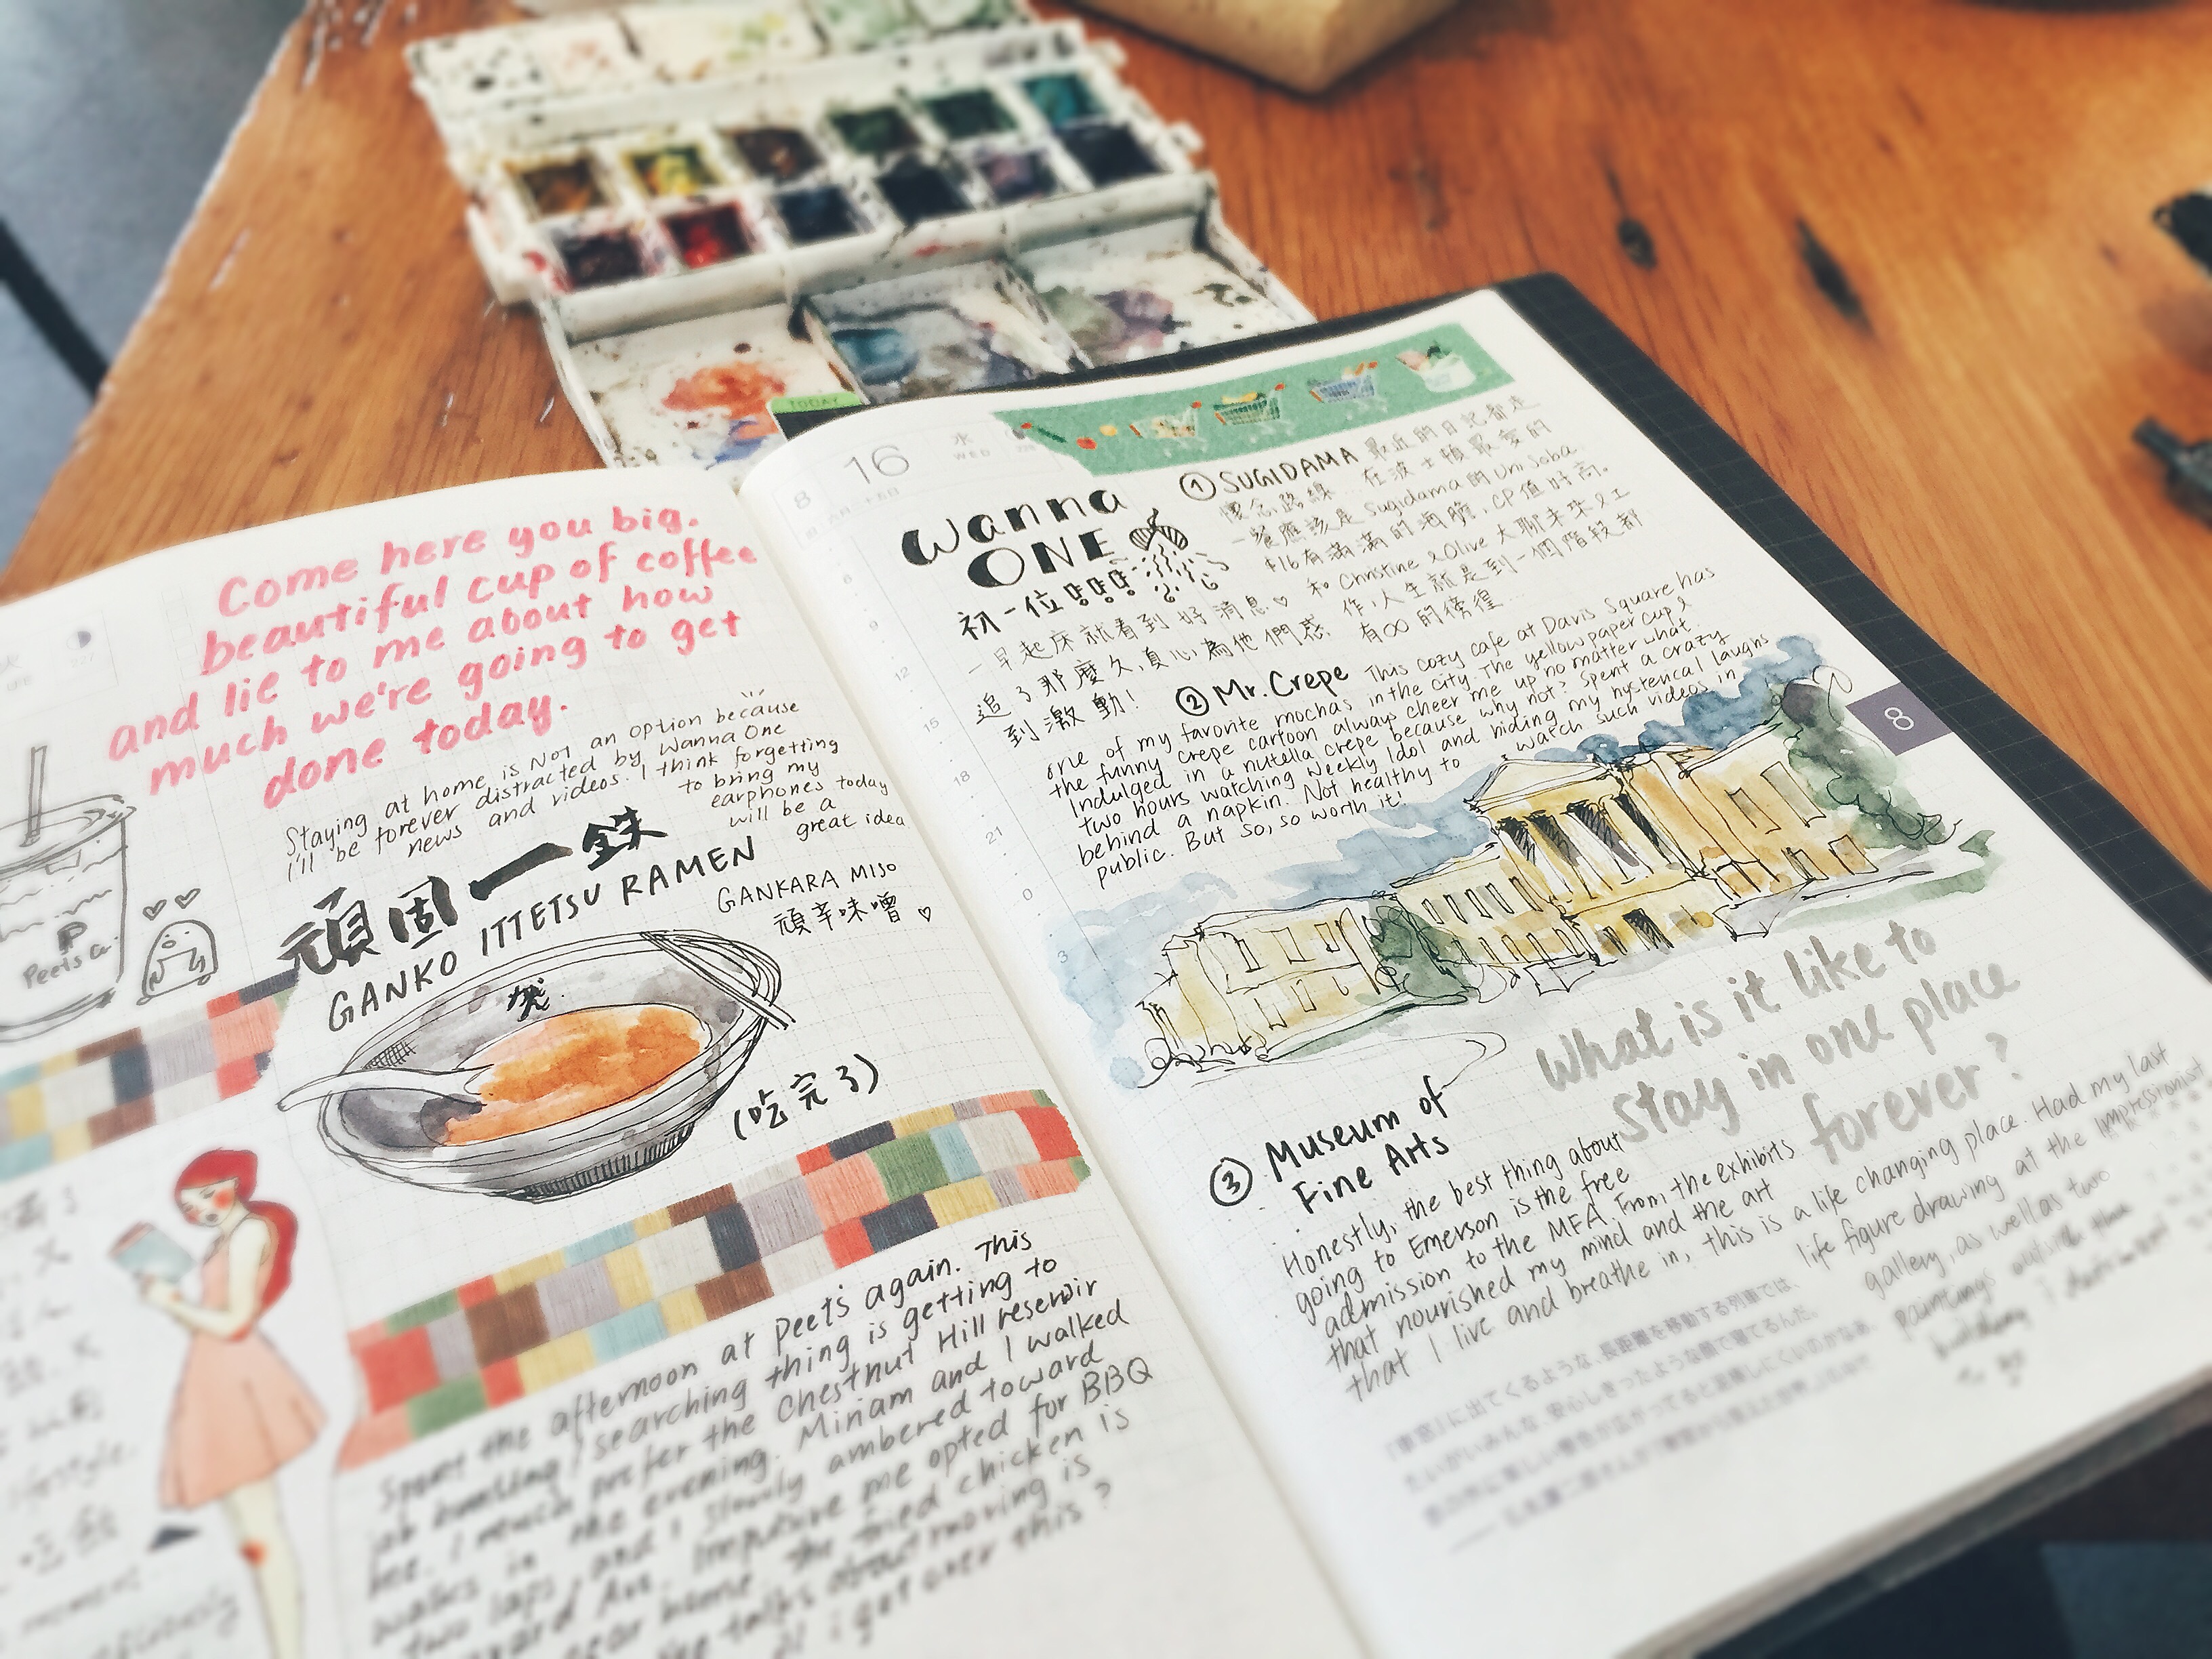 Come here you big.
beautiful cup of coffee
and lie to me about how
much we're going to get
done today.
Staying at home is NOT an option because
i'll be forever distracted by Wanna One
news and videos. I think forgetting
to bring my
earphones today
will be a
great idea
Peet's Co.
頑固一鉄
GANKO ITTETSU RAMEN
GANKARA MISO
頑辛味噌 ♡
(吃完了)
Spent the afternoon at Peet's again. This
job hunting/searching thing is getting to
me. I much prefer the Chestnut Hill reservoir
walks in the evening. Miriam and I walked
two laps, and I slowly ambered toward
Impulsive me opted for BBQ
near home. the fried chicken is
talks about moving is
i get over this?
lifestyle.
moment
TODAY
8
16
水
WED
6
9
12
15
18
21
0
3
Wanna
ONE
初一位!!!
一早起床就看到好消息♡
追了那麼久,真心為他們感
到激動!
① SUGIDAMA 最近的日記都走
懷念路線...在波士頓最愛的
一餐應該是Sugidama的Uni Soba
$16有滿滿的海膽,CP值好高。
和Christine & Olive大聊未來&工
作,人生就是到一個階段都
有∞的徬徨
② Mr. Crepe This cozy cafe at Davis Square has
one of my favorite mochas in the city. The yellow paper cup &
the funny crepe cartoon always cheer me up no matter what.
Indulged in a nutella crepe because why not? Spent a crazy
two hours watching Weekly Idol and hiding my hysterical laughs
behind a napkin. Not healthy to watch such videos in
public. But so, so worth it!
8
What is it like to
stay in one place
forever?
③ Museum of
Fine Arts
Honestly, the best thing about
going to Emerson is the free
admission to the MFA. From the exhibits
that nourished my mind and the art
that I live and breathe in, this is a life changing place. Had my last
life figure drawing at the Impressionist
gallery, as well as two
paintings outside the
building
に出てくるような、長距離を移動する列車では、
たいがいみんな、安心しきったような顔で寝てるんだ。